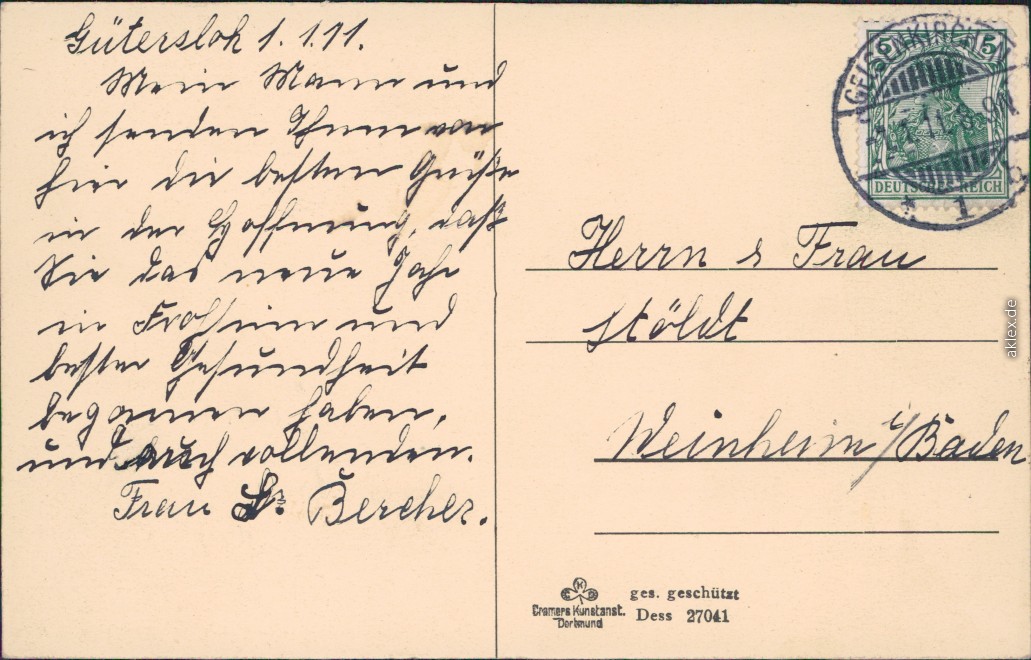 Gütersloh 1.1.11.
Mein Mann und
ich senden Ihnen von
hier die besten Grüße
in der Hoffnung, daß
Sie das neue Jahr
in Frohsinn und
bester Gesundheit
begonnen haben,
und auch vollenden.
Frau Dr. Bercher.
GELSENKIRCHEN
1.1.11. 8-9N
* 1 b
5 5
DEUTSCHES REICH
Herrn & Frau
Stöldt
Weinheim i/Baden
aklex.de
K
Cramers Kunstanst.
Dortmund
ges. geschützt
Dess 27041